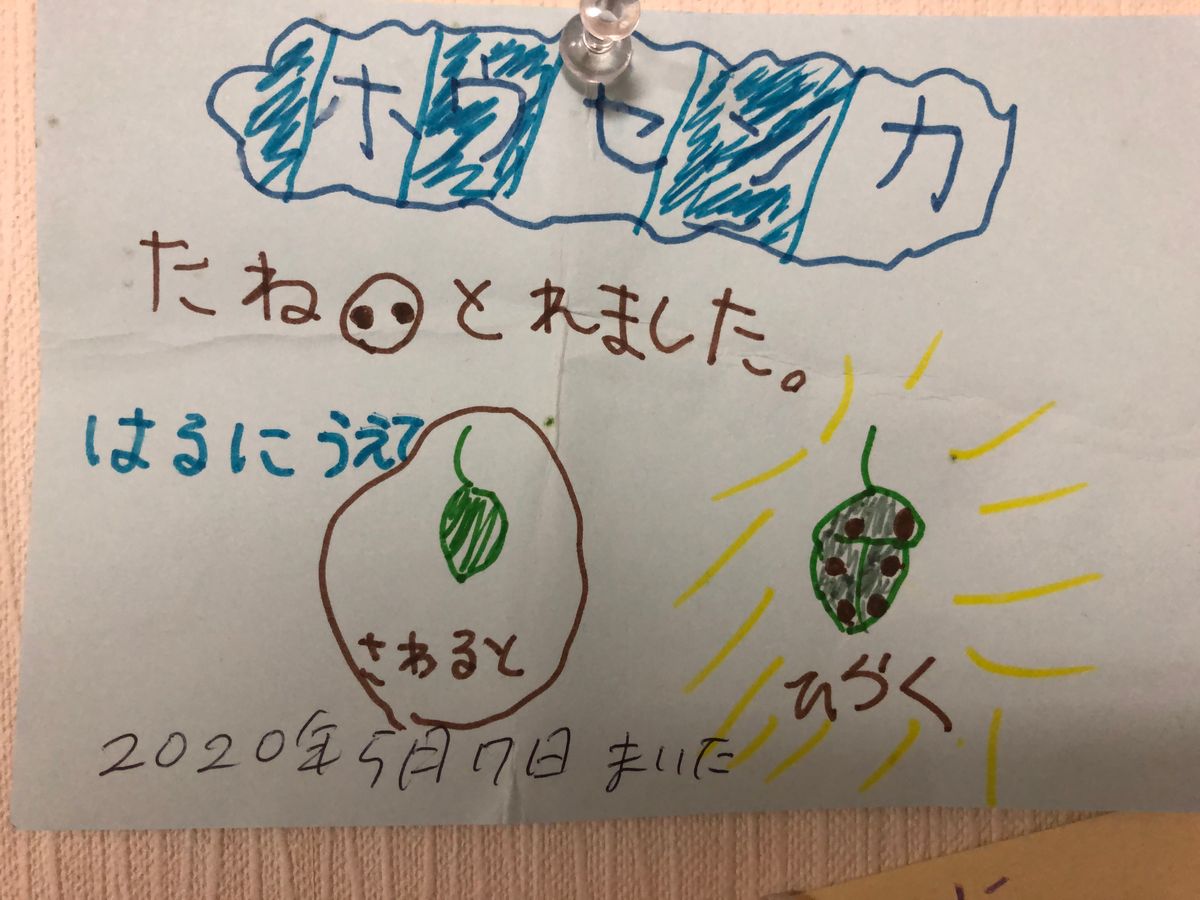 ホウセンカ
たね とれました。
はるにうえて
さわると
ひらく
2020年5月7日 まいた